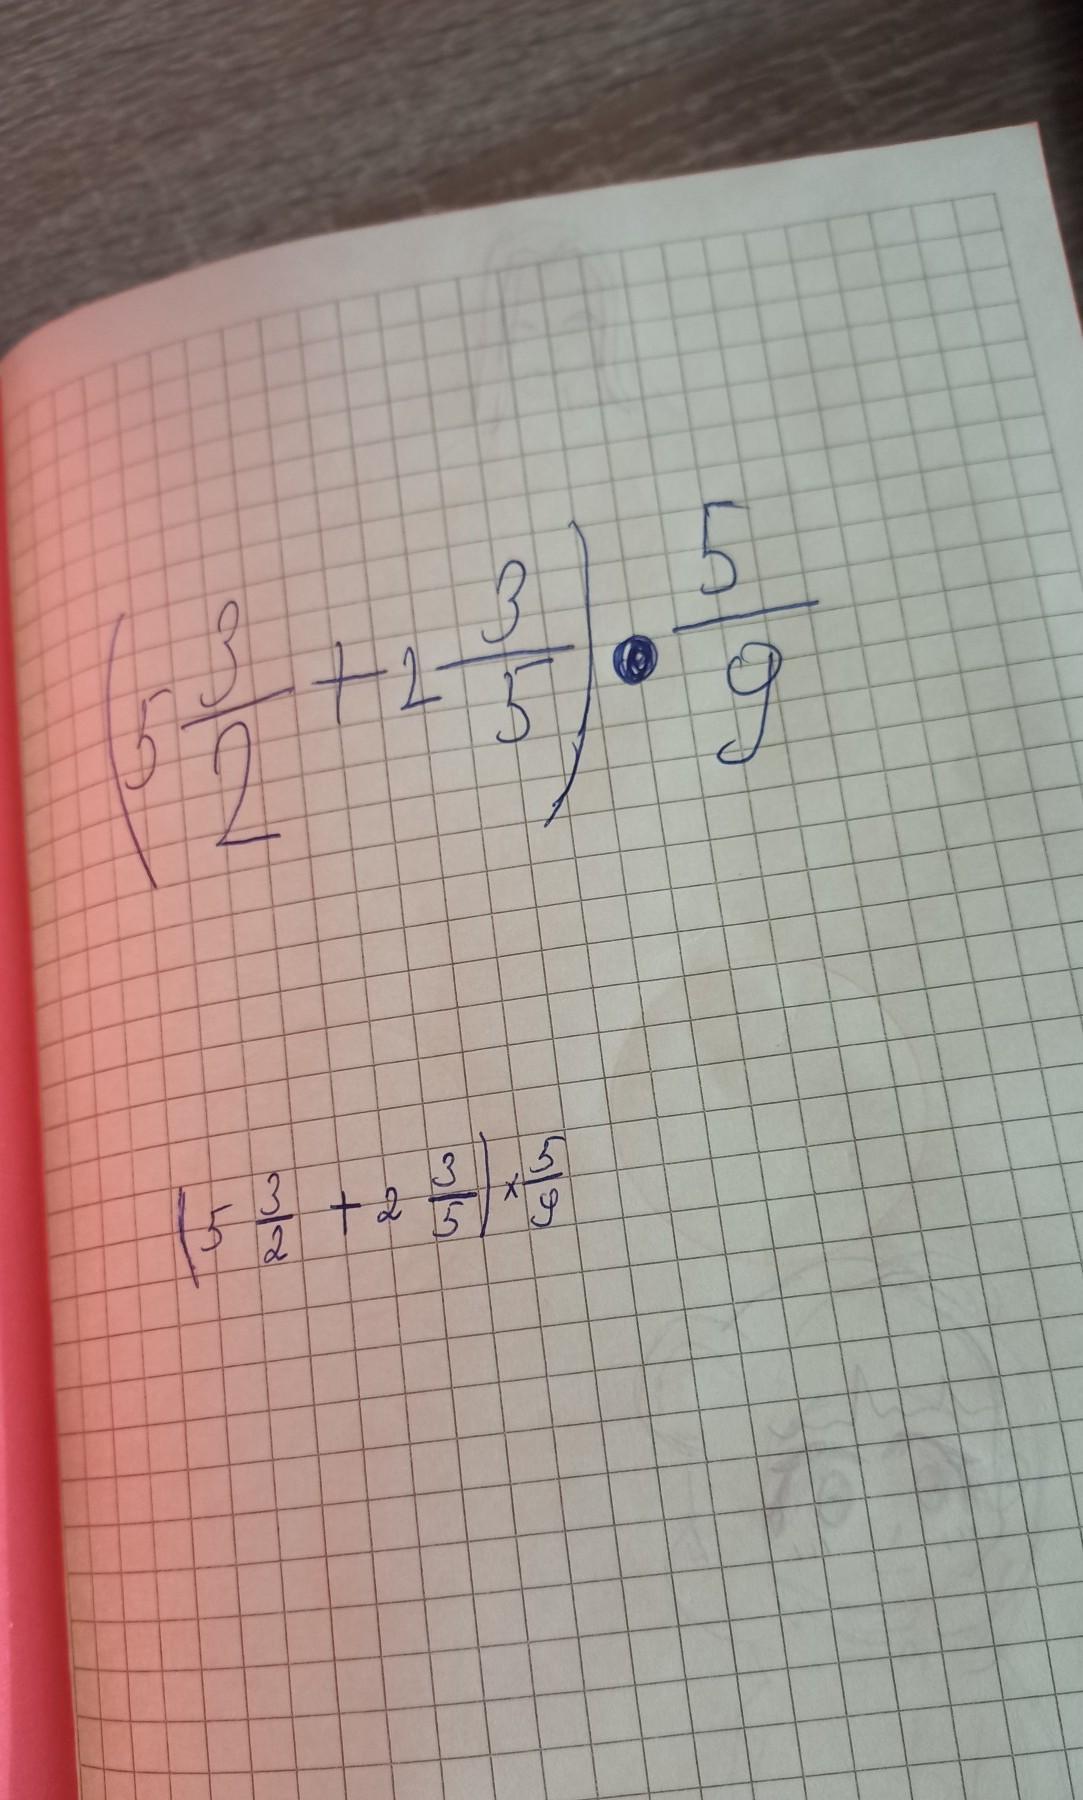 (5 3/2 + 2 3/5) • 5/9
(5 3/2 + 2 3/5) × 5/9